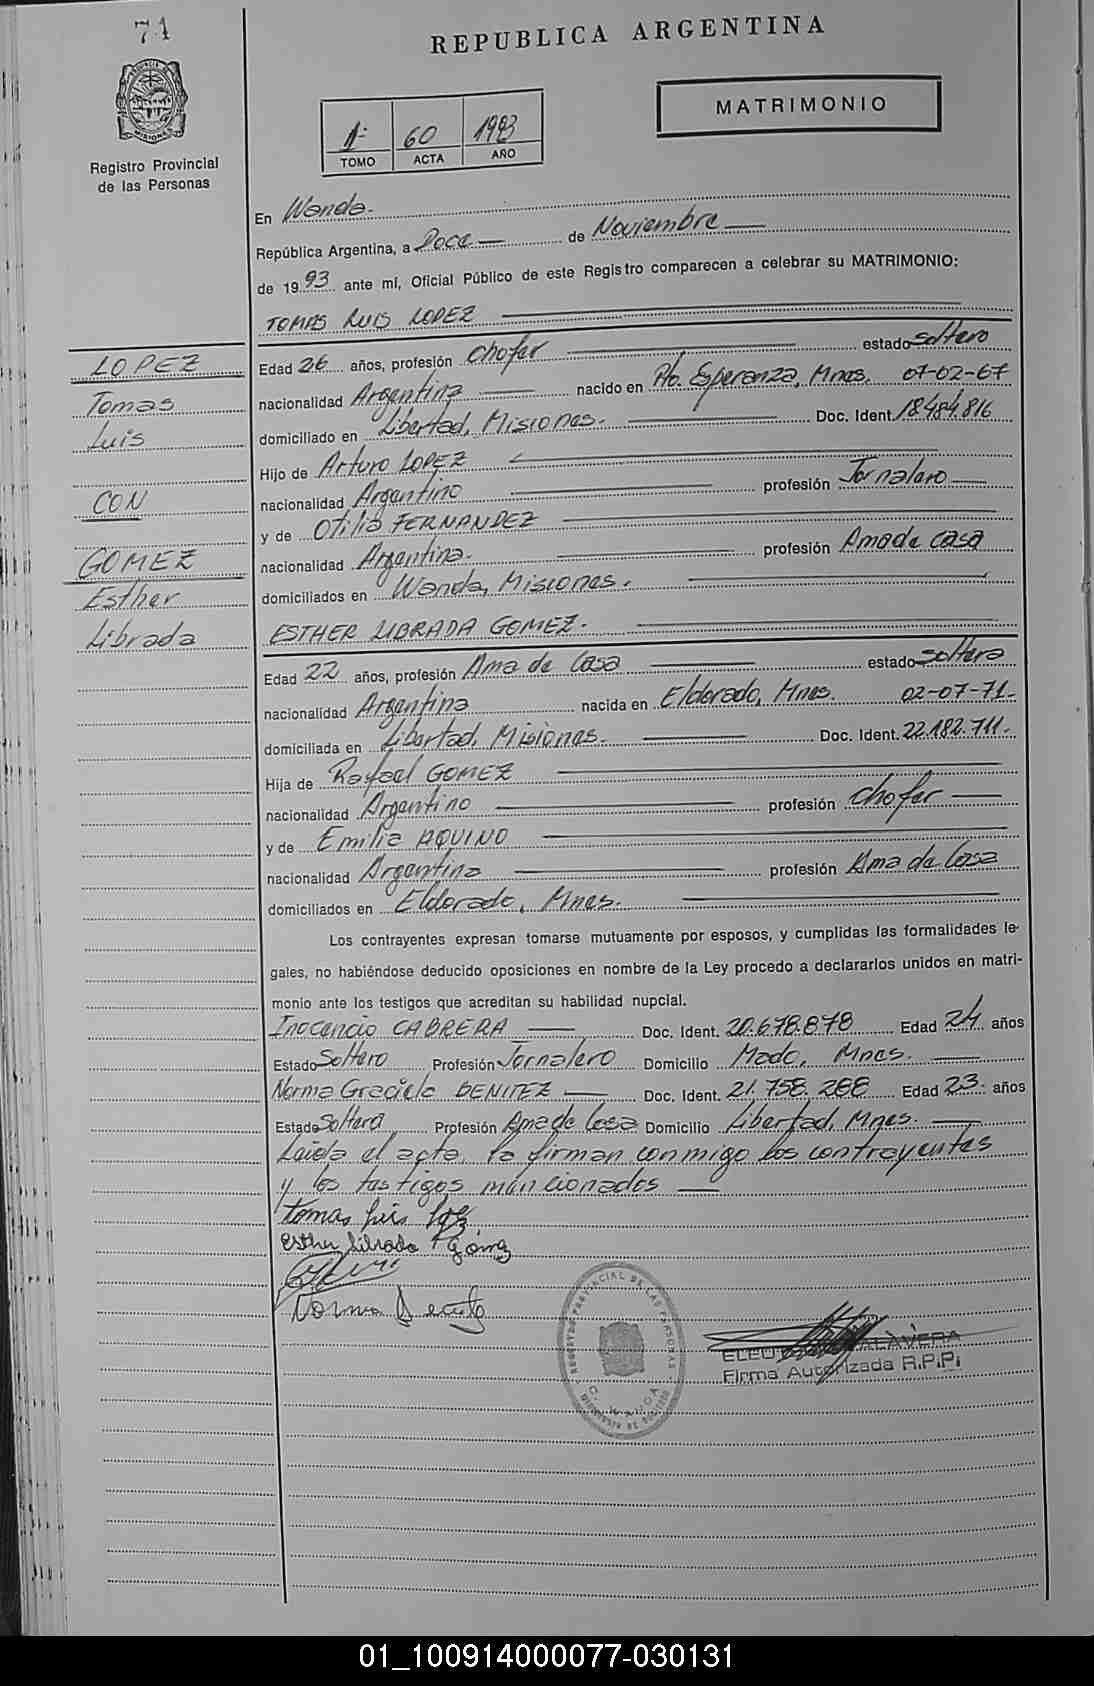 71
REPUBLICA ARGENTINA
MATRIMONIO
1º 60 1993
TOMO ACTA AÑO
PROVINCIA DE MISIONES
Registro Provincial
de las Personas
En Wanda.
República Argentina, a Doce de Noviembre
de 1993 ante mí, Oficial Público de este Registro comparecen a celebrar su MATRIMONIO:
TOMAS LUIS LOPEZ
LOPEZ
Tomas
Luis
CON
GOMEZ
Esther
Librada
Edad 26 años, profesión Chofer estado soltero
nacionalidad Argentina nacido en Pto. Esperanza, Mnes. 07-02-67
domiciliado en Libertad, Misiones. Doc. Ident. 18.484.816
Hijo de Arturo LOPEZ
nacionalidad Argentino profesión Jornalero
y de Otilia FERNANDEZ
nacionalidad Argentina. profesión Ama de casa
domiciliados en Wanda, Misiones.
ESTHER LIBRADA GOMEZ.
Edad 22 años, profesión Ama de Casa estado soltera
nacionalidad Argentina nacida en Eldorado, Mnes. 02-07-71-
domiciliada en Libertad, Misiones. Doc. Ident. 22.182.711.
Hija de Rafael GOMEZ
nacionalidad Argentino profesión Chofer
y de Emilia AQUINO
nacionalidad Argentina profesión Ama de Casa
domiciliados en Eldorado, Mnes.
Los contrayentes expresan tomarse mutuamente por esposos, y cumplidas las formalidades le-
gales, no habiéndose deducido oposiciones en nombre de la Ley procedo a declararlos unidos en matri-
monio ante los testigos que acreditan su habilidad nupcial.
Inocencio CABRERA Doc. Ident. 20.678.878 Edad 24 años
Estado Soltero Profesión Jornalero Domicilio Mado, Mnes.
Norma Graciela BENITEZ Doc. Ident. 21.758.288 Edad 23 años
Estado Soltera Profesión Ama de Casa Domicilio Libertad, Mnes.
Leida el acta, la firman conmigo los contrayentes
y los testigos mencionados
tomas luis
Esther Librada Gómez
Norma
REGISTRO PROVINCIAL DE LAS PERSONAS
WANDA
ALAVERA
Firma Autorizada R.P.P.
01_100914000077-030131